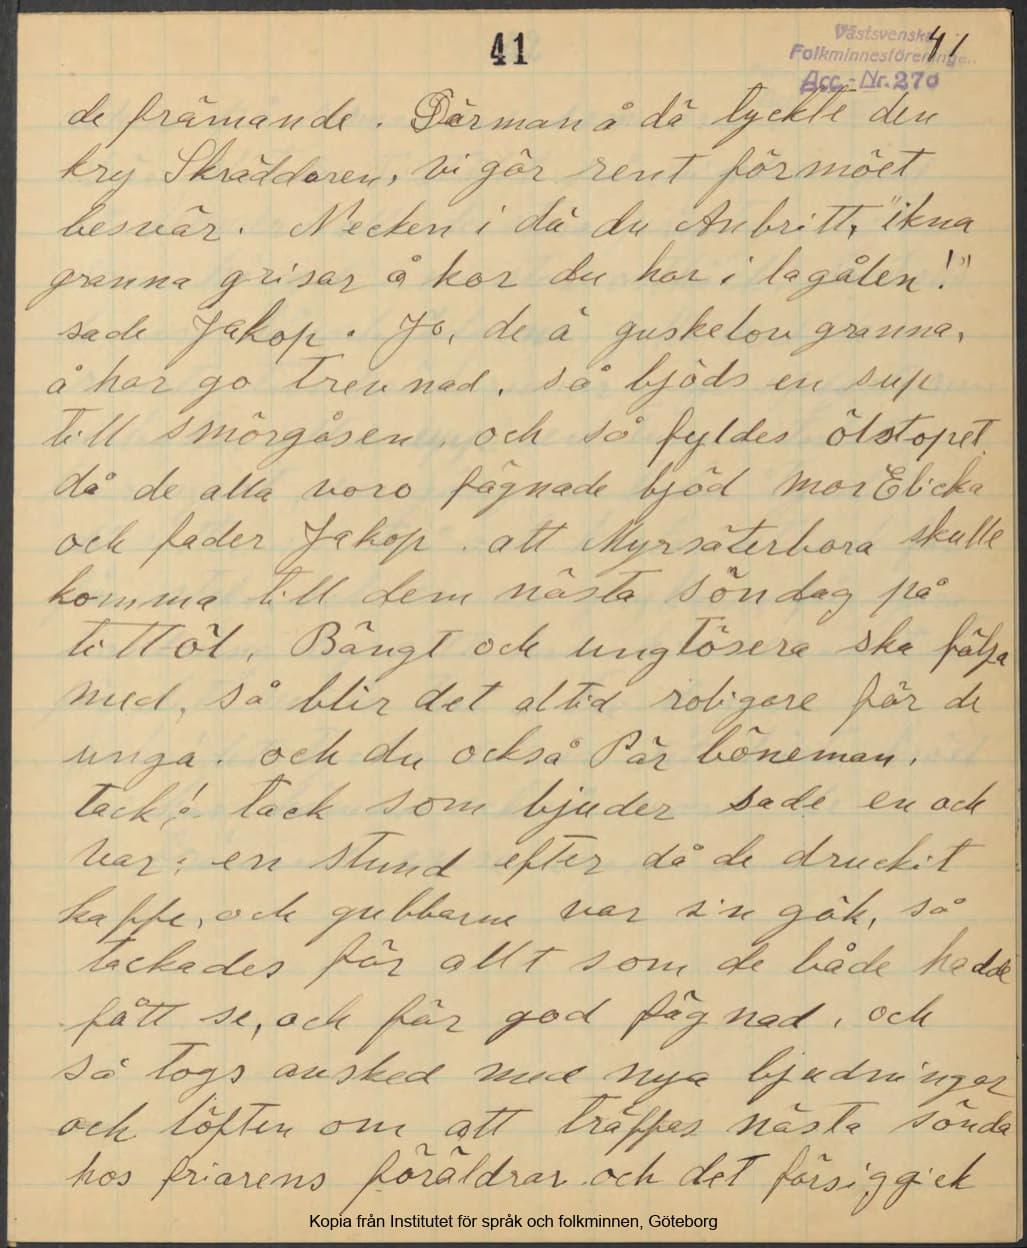 41
41
Västsvenska
Folkminnesförening..
Acc.-Nr. 270
de främande. Pärman å dä tyckte den
kry Skräddaren, vi gör rent för möet
besvär. Necken i dä du Anbritt, "ikna
granna grisar å kor du har i lagålen!"
sade Jakop. Jo, de ä guskelov granna,
å har go trevnad. så bjöds en sup
till smörgåsen, och så fyldes ölstopet.
då de alla voro fägnade bjöd mor Elicka
och fader Jakop. att Myrsäterbora skulle
komma till dem nästa söndag på
tittöl, Bängt och ungtösera ska fälja
med, så blir det altid roligare för de
unga. och du också Pär böneman.
tack! tack som bjuder sade en och
var; en stund efter då de druckit
kaffe, och gubbarne var sin gök, så
tackades för allt som de både hadde
fått se, och för god fägnad, och
så togs avsked med nya bjudningar
och löften om att träffas nästa sönda
hos friarens föräldrar och det försiggick
Kopia från Institutet för språk och folkminnen, Göteborg